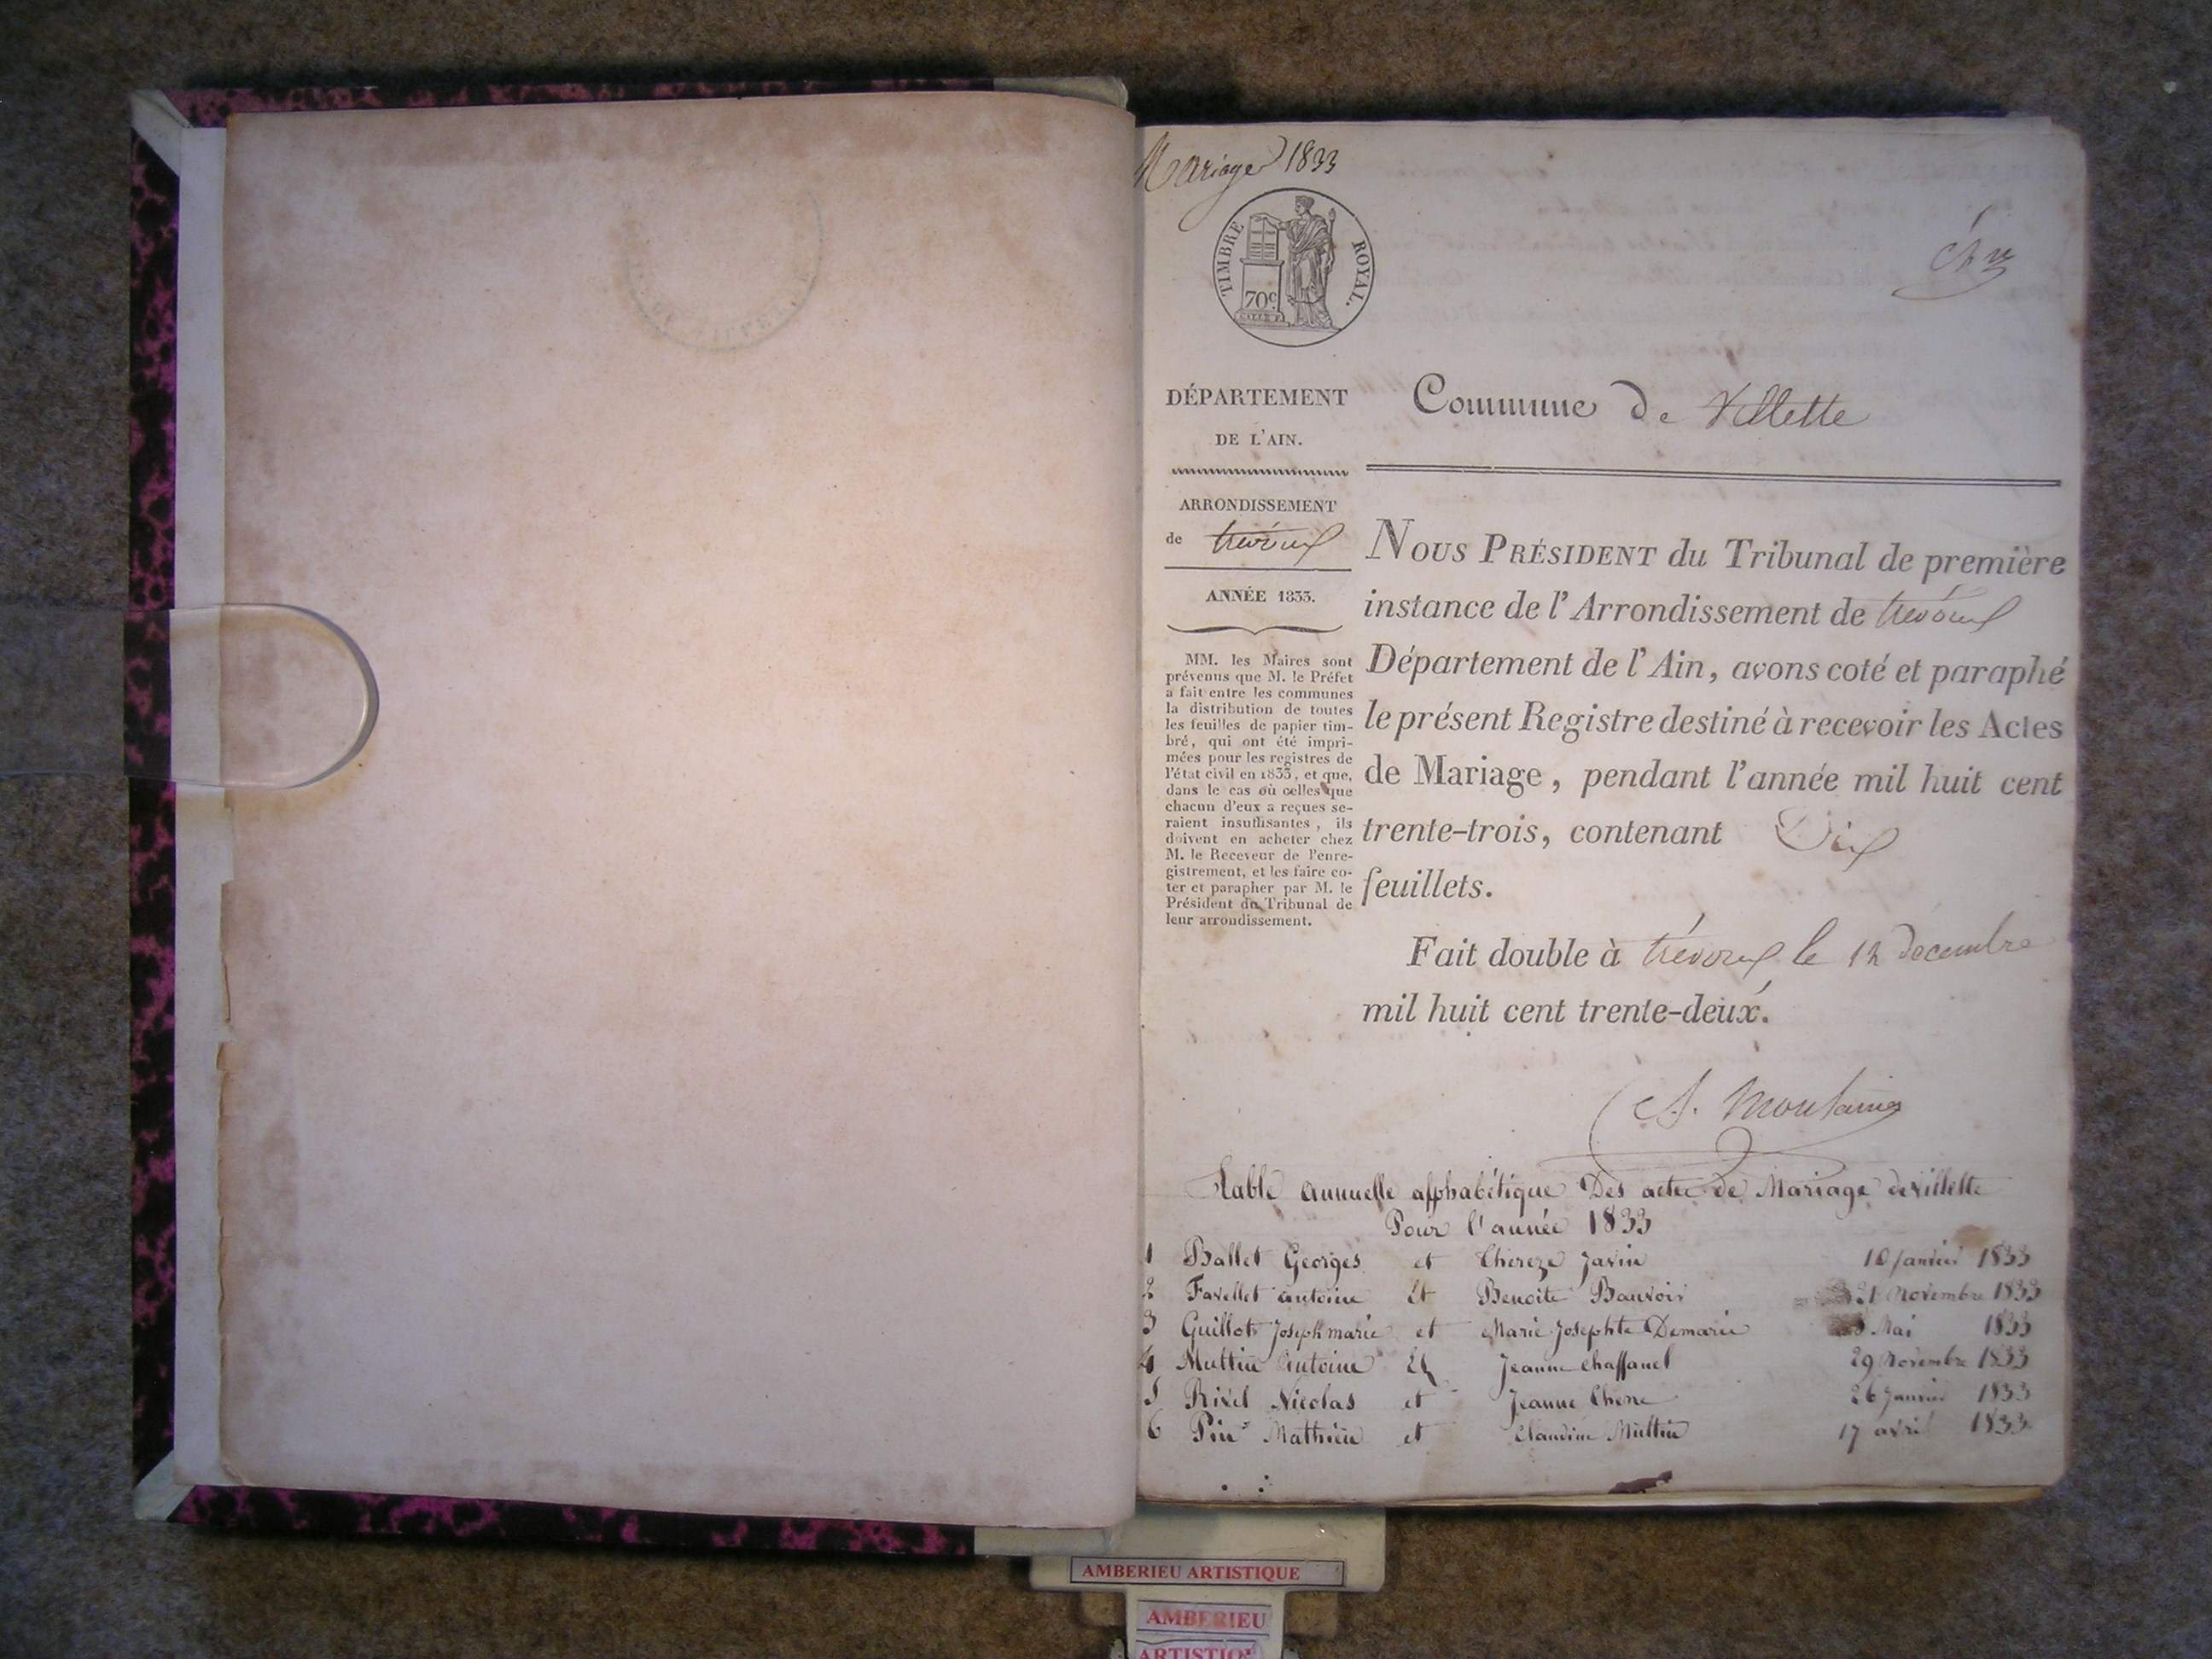 Mariage 1833
TIMBRE ROYAL.
70c
DÉPARTEMENT
DE L'AIN.
ARRONDISSEMENT
de trévoux
ANNÉE 1833.
MM. les Maires sont
prévenus que M. le Préfet
a fait entre les communes
la distribution de toutes
les feuilles de papier tim-
bré, qui ont été impri-
mées pour les registres de
l'état civil en 1833, et que,
dans le cas où celles que
chacun d'eux a reçues se-
raient insuffisantes, ils
doivent en acheter chez
M. le Receveur de l'enre-
gistrement, et les faire co-
ter et parapher par M. le
Président du Tribunal de
leur arrondissement.
Commune de Villette
NOUS PRÉSIDENT du Tribunal de première
instance de l'Arrondissement de trévoux
Département de l'Ain, avons coté et paraphé
le présent Registre destiné à recevoir les Actes
de Mariage, pendant l'année mil huit cent
trente-trois, contenant Dix
feuillets.
Fait double à trévoux le 12 décembre
mil huit cent trente-deux.
Table annuelle alphabétique Des actes de Mariage de villette
Pour l'année 1833
1 Ballet Georges et Thereze Javin 10 janvier 1833
2 Favellet antoine Et Benoite Bauvoir 21 Novembre 1833
3 Guillot Joseph marie et Marie Josephte Demarie 8 Mai 1833
4 Muttin Antoine Et Jeanne Chaffanel 29 Novembre 1833
5 Rivel Nicolas et Jeanne Chene 26 Janvier 1833
6 Pin Mathieu et Claudine Muttin 17 avril 1833
AMBERIEU ARTISTIQUE
AMBERIEU